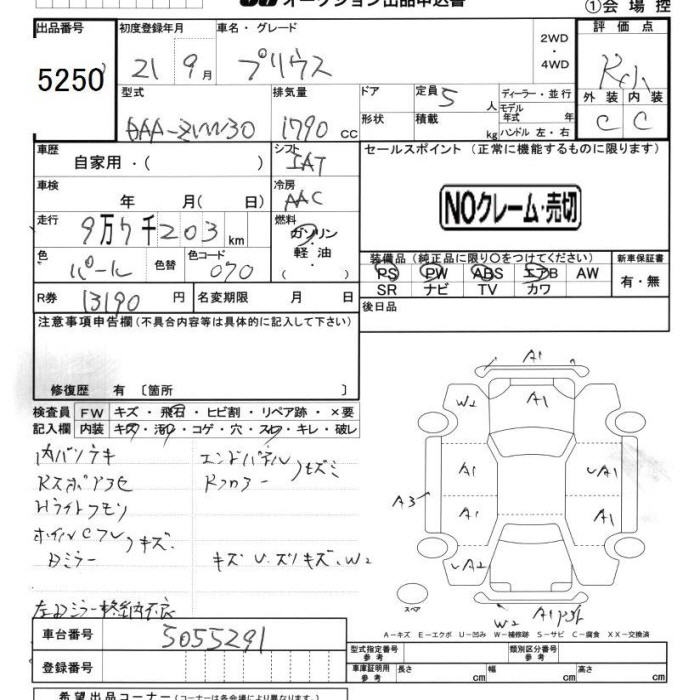 オークション出品申込書
①会場控
出品番号 初度登録年月 車名・グレード 2WD・4WD 評価点
5250 21 9月 プリウス
型式 排気量 ドア 定員 5 人 ディーラー・並行 外装 内装
DAA-ZVW30 1790 cc 形状 積載 kg モデル年式 年 C C
ハンドル 左・右
車歴 自家用・( ) シフト IAT セールスポイント (正常に機能するものに限ります)
車検 年 月( 日) 冷房 AAC NOクレーム・売切
走行 9万7千203km 燃料 ガソリン・軽油・( )
色 パール 色替 色コード 070 装備品 (純正品に限り○をつけてください) 新車保証書
PS PW ABS エアB AW 有・無
SR ナビ TV カワ
R券 13190円 名変期限 月 日 後日品
注意事項申告欄 (不具合内容等は具体的に記入して下さい)
修復歴 有 〔箇所 〕
検査員 FW キズ・飛石・ヒビ割・リペア跡・×要
記入欄 内装 キズ・汚れ・コゲ・穴・スレ・キレ・破レ
A1
W2 A1
A1 A1
A3
A1 A1
A2
スペア
W2 A1
キズ U・ズリキズ、W2
A－キズ E－エクボ U－凹み W－補修跡 S－サビ C－腐食 XX－交換済
車台番号 5055291 型式指定番号 参考 類別区分番号 参考
登録番号 車庫証明用 参考 長さ cm 幅 cm 高さ cm
希望出品コーナー (コーナーは各会場により異なります)